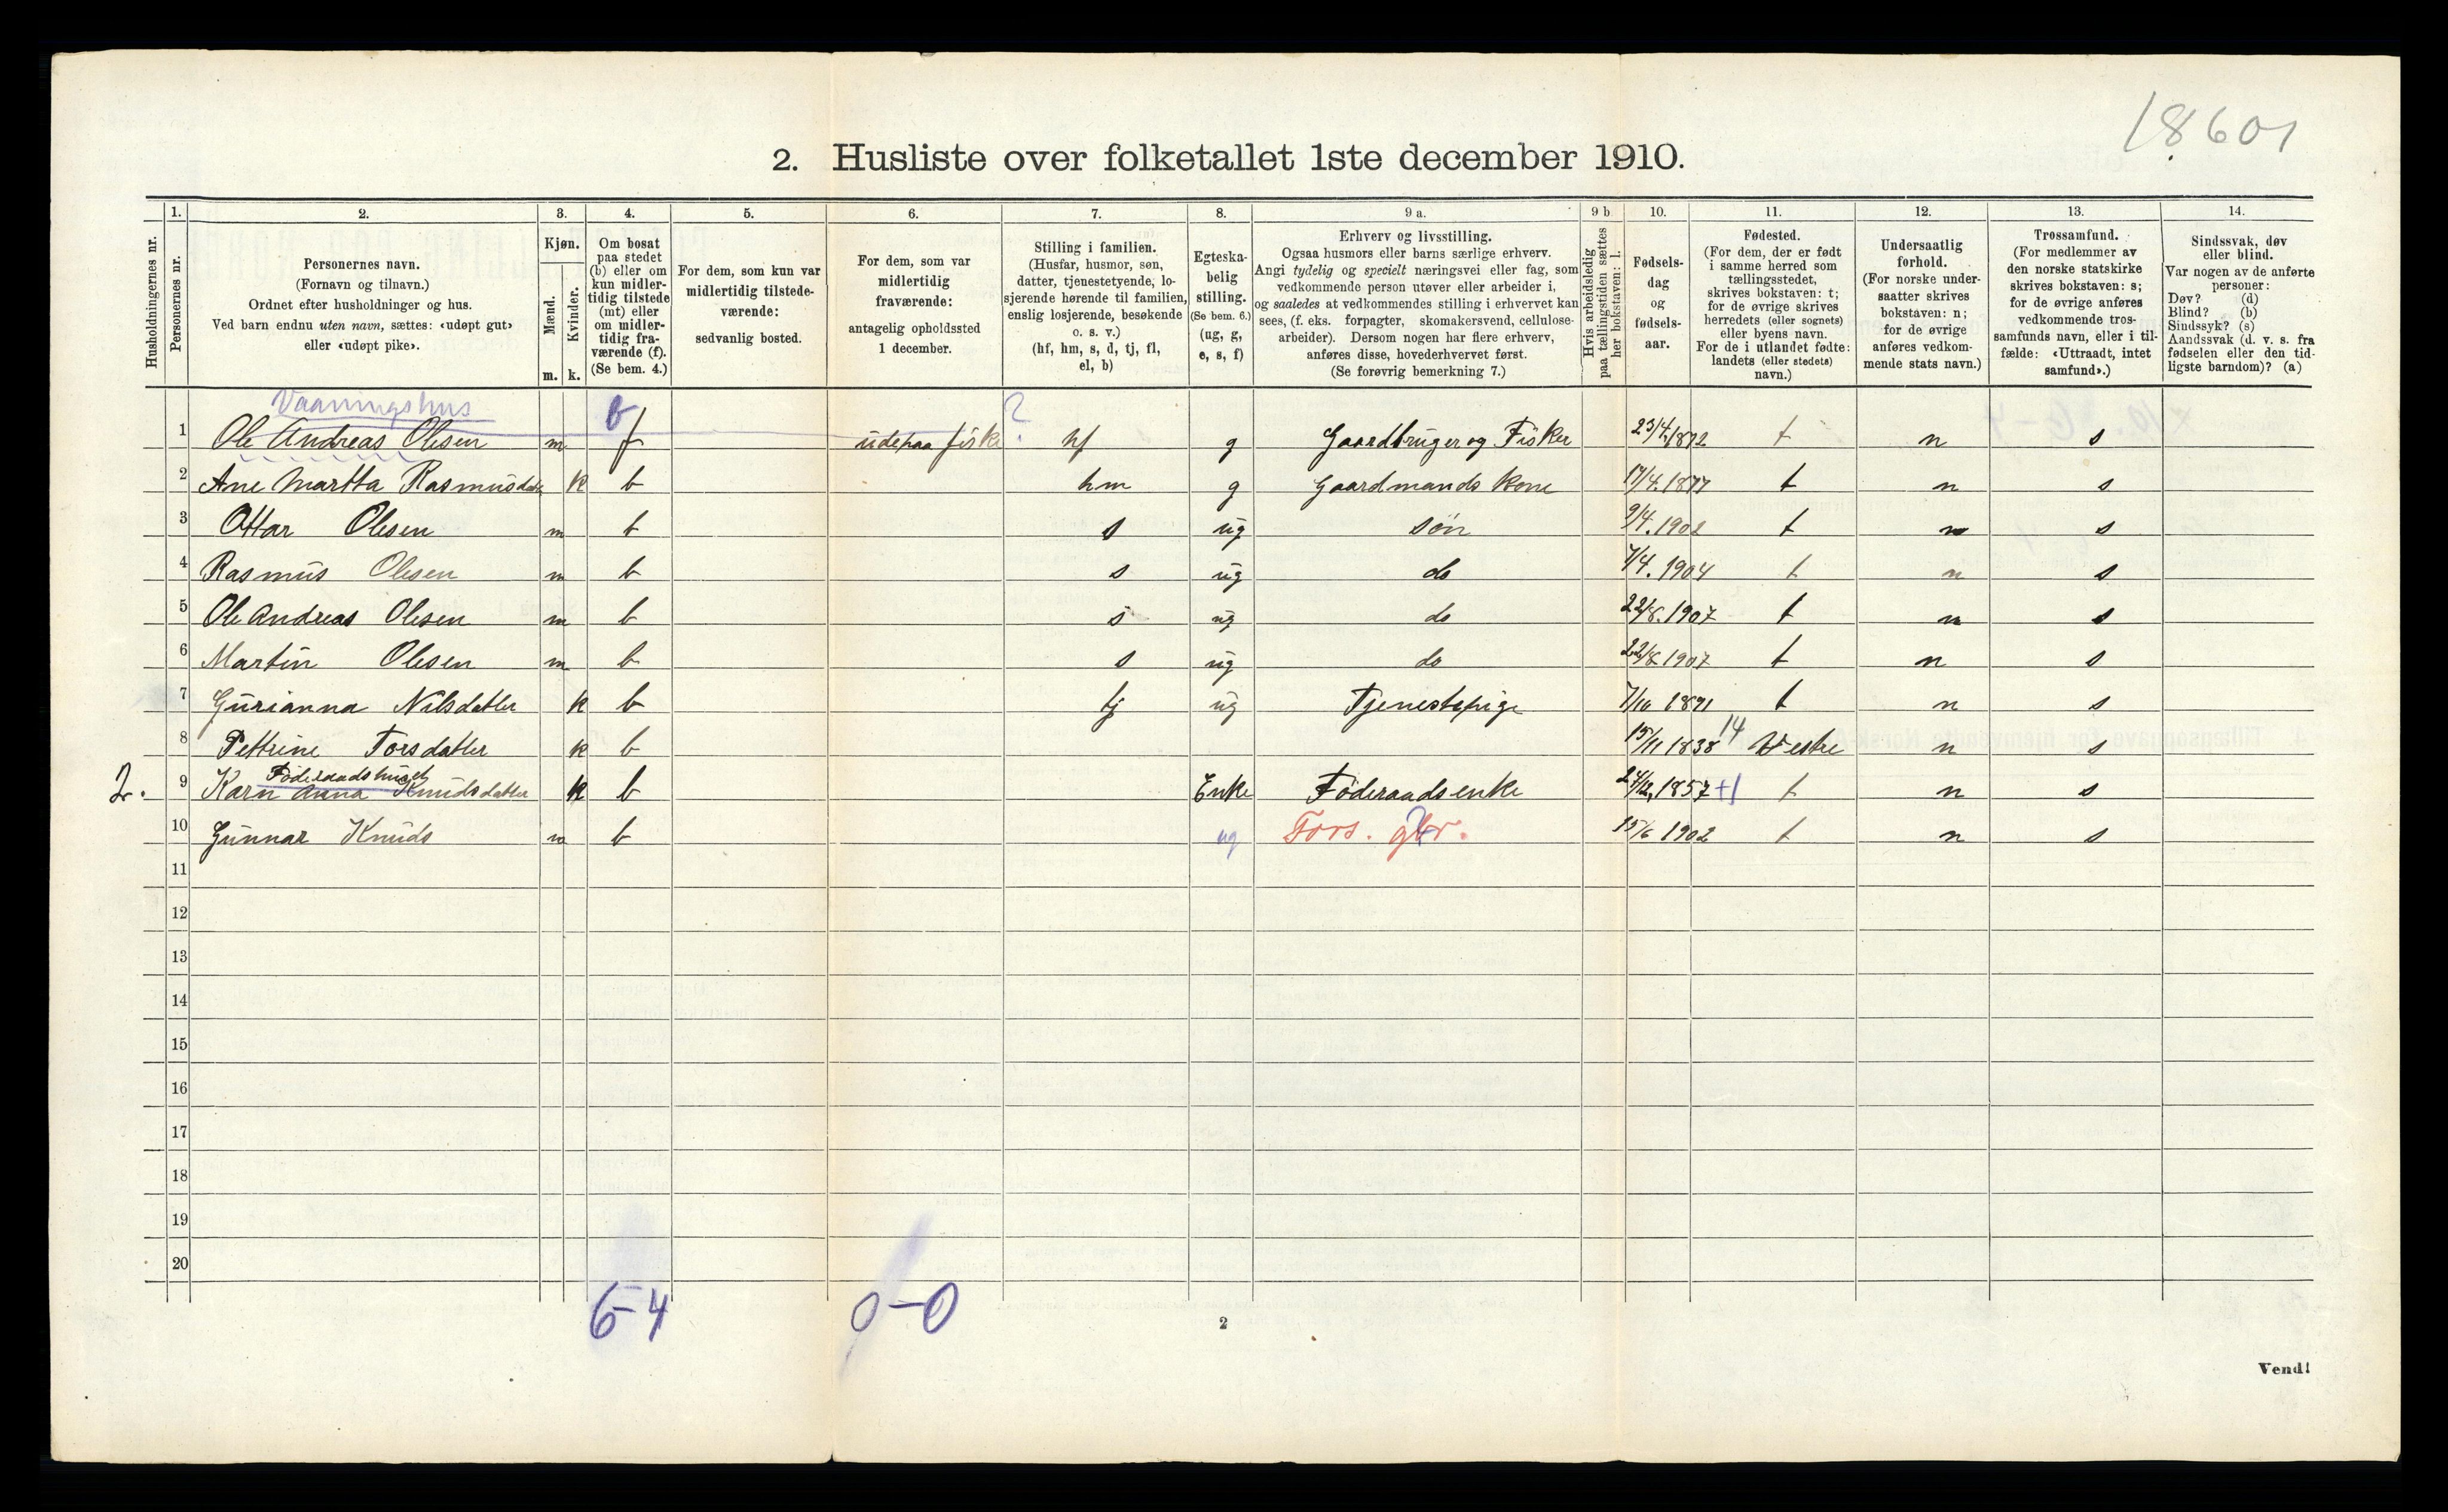 18601
2. Husliste over folketallet 1ste december 1910.
Husholdningernes nr.
1.
Personernes nr.
2.
Personernes navn.
(Fornavn og tilnavn.)
Ordnet efter husholdninger og hus.
Ved barn endnu uten navn, sættes: «udøpt gut»
eller «udøpt pike».
3.
Kjøn.
Mænd.
Kvinder.
m. k.
4.
Om bosat
paa stedet
(b) eller om
kun midler-
tidig tilstede
(mt) eller
om midler-
tidig fra-
værende (f).
(Se bem. 4.)
5.
For dem, som kun var
midlertidig tilstede-
værende:
sedvanlig bosted.
6.
For dem, som var
midlertidig
fraværende:
antagelig opholdssted
1 december.
7.
Stilling i familien.
(Husfar, husmor, søn,
datter, tjenestetyende, lo-
sjerende hørende til familien,
enslig losjerende, besøkende
o. s. v.)
(hf, hm, s, d, tj, fl,
el, b)
8.
Egteska-
belig
stilling.
(Se bem. 6.)
(ug, g,
e, s, f)
9 a.
Erhverv og livsstilling.
Ogsaa husmors eller barns særlige erhverv.
Angi tydelig og specielt næringsvei eller fag, som
vedkommende person utøver eller arbeider i,
og saaledes at vedkommendes stilling i erhvervet kan
sees, (f. eks. forpagter, skomakersvend, cellulose-
arbeider). Dersom nogen har flere erhverv,
anføres disse, hovederhvervet først.
(Se forøvrig bemerkning 7.)
9 b
Hvis arbeidsledig
paa tællingstiden sættes
her bokstaven: l.
10.
Fødsels-
dag
og
fødsels-
aar.
11.
Fødested.
(For dem, der er født
i samme herred som
tællingsstedet,
skrives bokstaven: t;
for de øvrige skrives
herredets (eller sognets)
eller byens navn.
For de i utlandet fødte:
landets (eller stedets)
navn.)
12.
Undersaatlig
forhold.
(For norske under-
saatter skrives
bokstaven: n;
for de øvrige
anføres vedkom-
mende stats navn.)
13.
Trossamfund.
(For medlemmer av
den norske statskirke
skrives bokstaven: s;
for de øvrige anføres
vedkommende tros-
samfunds navn, eller i til-
fælde: «Uttraadt, intet
samfund».)
14.
Sindssvak, døv
eller blind.
Var nogen av de anførte
personer:
Døv? (d)
Blind? (b)
Sindssyk? (s)
Aandssvak (d. v. s. fra
fødselen eller den tid-
ligste barndom)? (a)
Vaaningshus b ?
1 Ole Andreas Olesen m f udepaa fiske hf g Gaardbruger og Fisker 23/4 1872 t n s
2 Ane Martta Rasmusdatter k b hm g Gaardmands kone 17/4.1877 t n s
3 Ottar Olesen m b s ug søn 9/4.1902 t n s
4 Rasmus Olesen m b s ug do 7/4.1904 t n s
5 Ole Andreas Olesen m b s ug do 22/8.1907 t n s
6 Martin Olesen m b s ug do 22/8 1907 t n s
7 Gurianna Nilsdatter k b tj ug Tjenestepige 7/10 1891 t n s
8 Pettrine Torsdatter k b 15/11 1838 14 Vestre n s
Føderaadshuset
2. 9 Karn Anna Knudsdatter k b Enke Føderaadsenke 27/12 1857 +1 t n s
10 Gunnar Knuds m b ug Fors. gbr. 15/6 1902 t n s
11
12
13
14
15
16
17
18
19
20
6-4 0-0
2
Vend!